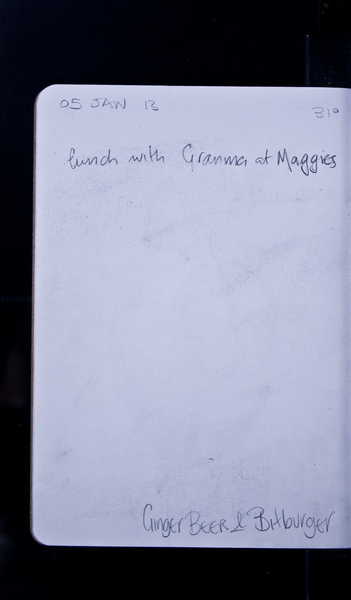 05 JAN 13
31°
lunch with Granma at Maggies
Ginger BEER & Bitburger